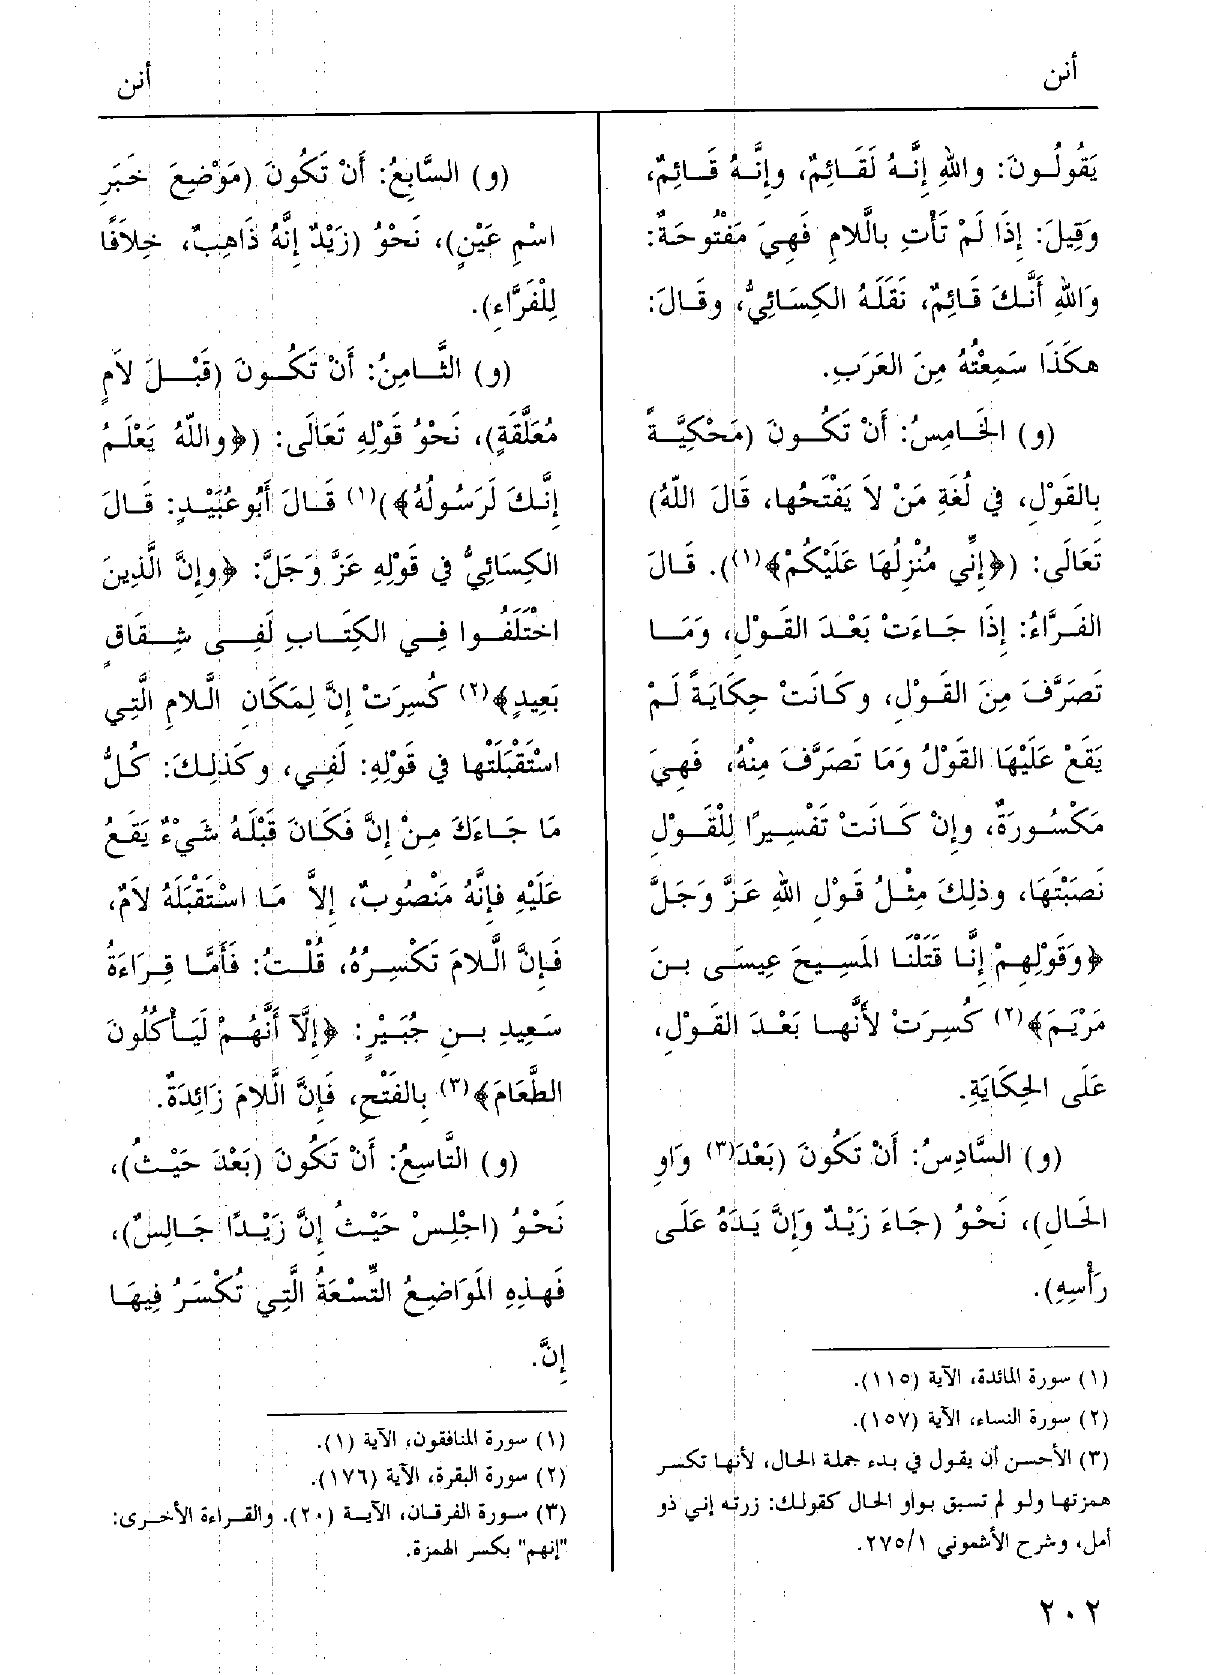 أنن
أنن
يَقُولُونَ: واللهِ إِنَّهُ لَقَائِمٌ، وإِنَّهُ قَائِمٌ،
وَقِيلَ: إِذَا لَمْ تَأْتِ بالَّلامِ فَهِيَ مَفْتُوحَةٌ:
وَاللهِ أَنَّكَ قَائِمٌ، نَقَلَهُ الكِسَائِيُّ، وقَالَ:
هكَذَا سَمِعْتُهُ مِنَ العَرَبِ.
(و) الخَامِسُ: أَنْ تَكُونَ (مَحْكِيَّةً
بِالقَوْلِ، في لُغَةِ مَنْ لاَ يَفْتَحُها، قَالَ اللهُ)
تَعَالَى: (﴿إِنِّي مُنْزِلُهَا عَلَيْكُمْ﴾(١)). قَالَ
الفَرَّاءُ: إِذَا جَاءَتْ بَعْدَ القَوْلِ، وَمَا
تَصَرَّفَ مِنَ القَوْلِ، وكَانَتْ حِكَايَةً لَمْ
يَقَعْ عَلَيْهَا القَوْلُ وَمَا تَصَرَّفَ مِنْهُ، فَهِيَ
مَكْسُورَةٌ، وإِنْ كَانَتْ تَفْسِيرًا لِلْقَوْلِ
نَصَبْتَهَا، وذلِكَ مِثْلُ قَولِ اللهِ عَزَّ وَجَلَّ
﴿وَقَولِهِمْ إِنَّا قَتَلْنَا المَسِيحَ عِيسَى بنَ
مَرْيَمَ﴾(٢) كُسِرَتْ لأَنَّها بَعْدَ القَوْلِ،
عَلَى الحِكَايَةِ.
(و) السَّادِسُ: أَنْ تَكُونَ (بَعْدَ(٣) وَاوِ
الحَالِ)، نَحْوُ (جَاءَ زَيْدٌ وَإِنَّ يَدَهُ عَلَى
رَأْسِهِ).
(١) سورة المائدة، الآية (١١٥).
(٢) سورة النساء، الآية (١٥٧).
(٣) الأحسن أن يقول في بدء جملة الحال، لأنها تكسر
همزتها ولو لم تسبق بواو الحال كقولك: زرته إني ذو
أمل، وشرح الأشموني ٢٧٥/١.
(و) السَّابِعُ: أَنْ تَكُونَ (مَوْضِعَ خَبَرِ
اسْمِ عَيْنٍ)، نَحْوُ (زَيْدٌ إِنَّهُ ذَاهِبٌ، خِلاَفًا
لِلْفَرَّاءِ).
(و) الثَّامِنُ: أَنْ تَكُونَ (قَبْلَ لاَمٍ
مُعَلَّقَةٍ)، نَحْوُ قَوْلِهِ تَعَالَى: (﴿واللهُ يَعْلَمُ
إِنَّكَ لَرَسُولُهُ﴾)(١) قَالَ أَبُو عُبَيْدٍ: قَالَ
الكِسَائِيُّ في قَوْلِهِ عَزَّ وَجَلَّ: ﴿وإِنَّ الَّذِينَ
اخْتَلَفُوا فِي الكِتَابِ لَفِي شِقَاقٍ
بَعِيدٍ﴾(٢) كُسِرَتْ إِنَّ لِمَكَانِ الَّلامِ الَّتِي
اسْتَقْبَلَتْها في قَوْلِهِ: لَفِي، وكَذلِكَ: كُلُّ
مَا جَاءَكَ مِنْ إِنَّ فَكَانَ قَبْلَهُ شَيْءٌ يَقَعُ
عَلَيْهِ فإِنَّهُ مَنْصُوبٌ، إِلاَّ مَا اسْتَقْبَلَهُ لاَمٌ،
فَإِنَّ الَّلامَ تَكْسِرُهُ، قُلْتُ: فَأَمَّا قِرَاءَةُ
سَعِيدِ بنِ جُبَيْرٍ: ﴿إِلَّآ أَنَّهُمْ لَيَأْكُلُونَ
الطَّعَامَ﴾(٣) بِالفَتْحِ، فَإِنَّ الَّلامَ زَائِدَةٌ.
(و) التَّاسِعُ: أَنْ تَكُونَ (بَعْدَ حَيْثُ)،
نَحْوُ (اجْلِسْ حَيْثُ إِنَّ زَيْدًا جَالِسٌ)،
فَهذِهِ المَوَاضِعُ التِّسْعَةُ الَّتِي تُكْسَرُ فِيهَا
إِنَّ.
(١) سورة المنافقون، الآية (١).
(٢) سورة البقرة، الآية (١٧٦).
(٣) سورة الفرقان، الآية (٢٠). والقراءة الأخرى:
"إنهم" بكسر الهمزة.
٢٠٢